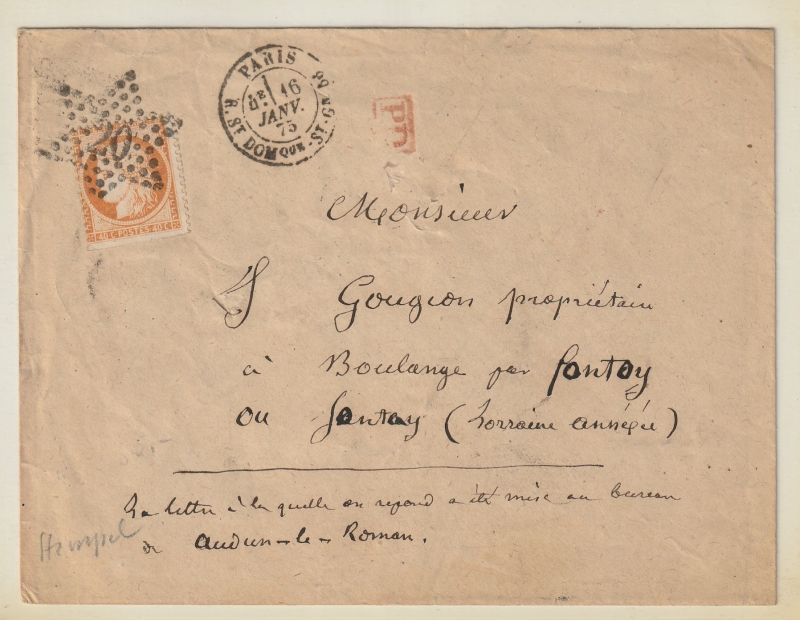 20
40 C POSTES 40 C
PARIS
R. ST DOMQUE-ST-GN 56
1E 16
JANV.
75
PD
Monsieur
J Gougeon propriétain
à Boulange par fontoy
ou fontoy (Lorraine annéxée)
La lettre à laquelle on repond a été mise au bureau
de audun-le-Roman.
Stempel